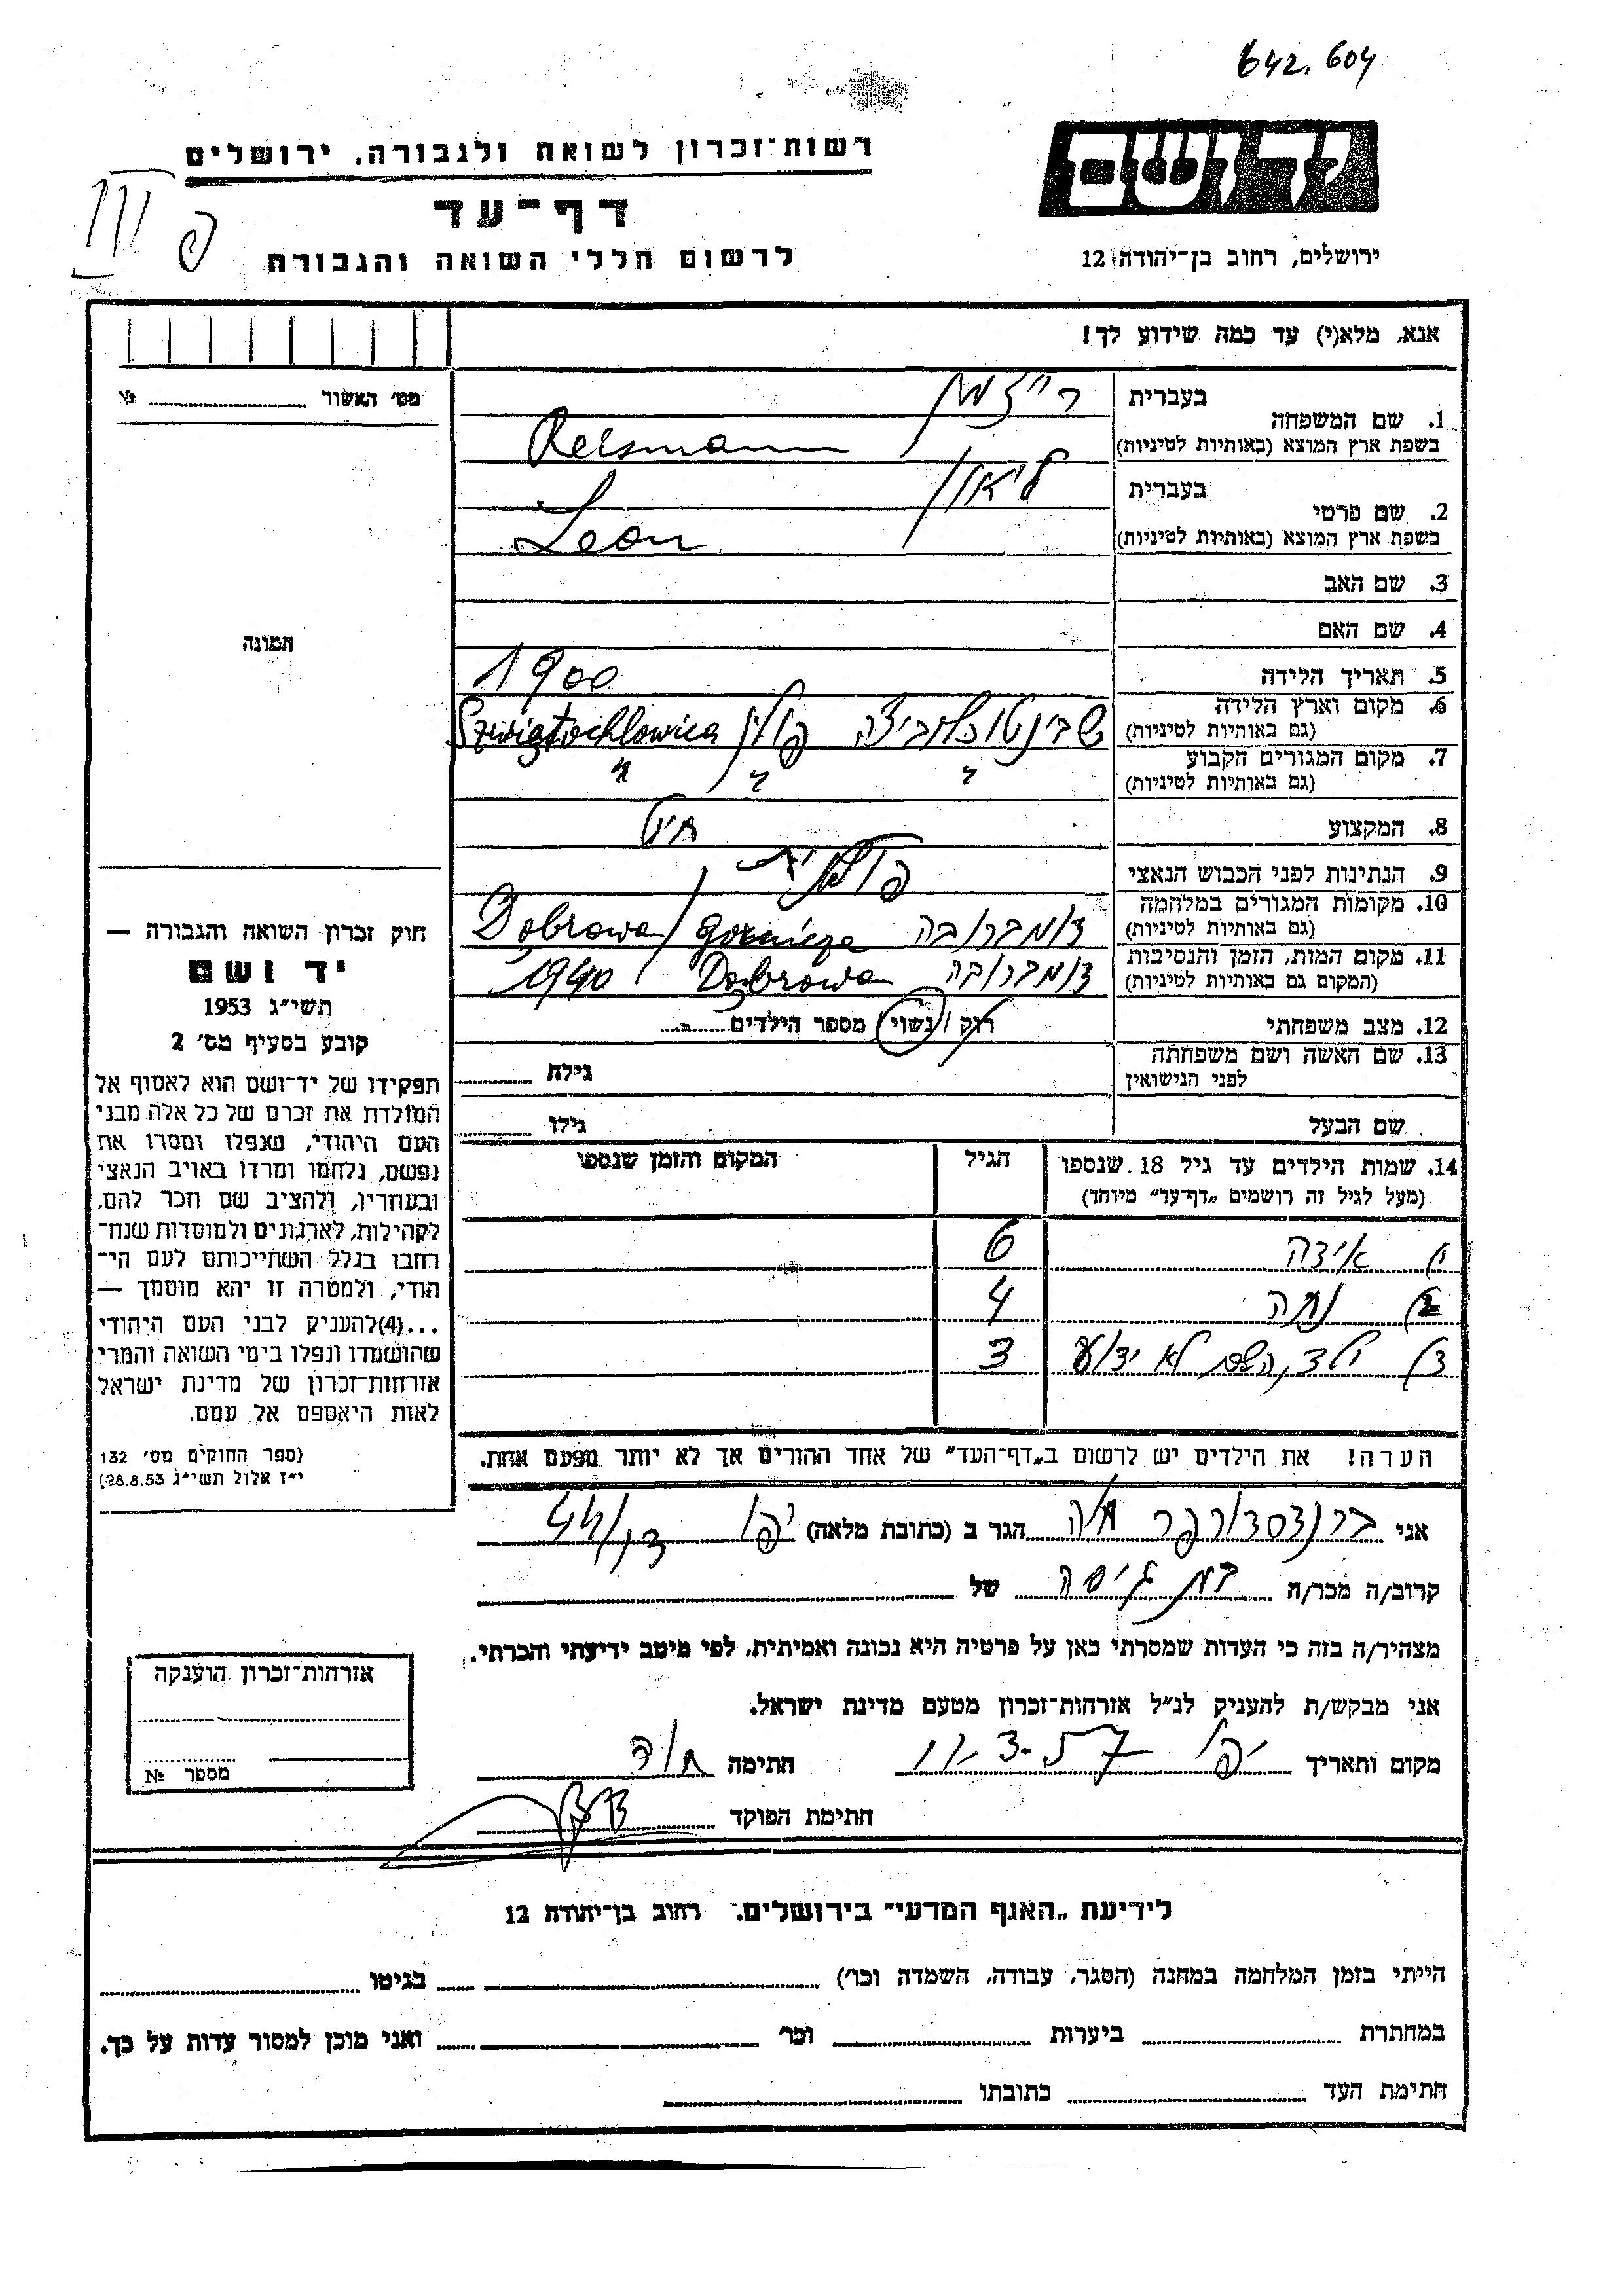 642.604
רשות־זכרון לשואה ולגבורה, ירושלים
יד ושם
דף־עד
III פ
לרשום חללי השואה והגבורה
ירושלים, רחוב בן־יהודה 12
אנא, מלא(י) עד כמה שידוע לך!
מס' האשור № 
1. שם המשפחה בעברית רייזמן
בשפת ארץ המוצא (באותיות לטיניות) Reismann
2. שם פרטי בעברית ליאון
בשפת ארץ המוצא (באותיות לטיניות) Leon
3. שם האב
4. שם האם
תמונה
5. תאריך הלידה 1900
6. מקום וארץ הלידה שבינטוכלוביצה פולין Szwiątochlowica
(גם באותיות לטיניות)
7. מקום המגורים הקבוע " " "
(גם באותיות לטיניות)
8. המקצוע חיט
9. הנתינות לפני הכבוש הנאצי פולנית
10. מקומות המגורים במלחמה דומברובה Dobrowa gornicza
(גם באותיות לטיניות)
11. מקום המות, הזמן והנסיבות דומברובה Dobrowa 1940
(המקום גם באותיות לטיניות)
12. מצב משפחתי רוק / נשוי / מספר הילדים
13. שם האשה ושם משפחתה לפני הנישואין גילה
שם הבעל גילו
14. שמות הילדים עד גיל 18 שנספו הגיל המקום והזמן שנספו
(מעל לגיל זה רושמים "דף־עד" מיוחד)
אידה 6
נחה 4
ילד, השם לא ידוע 3
הערה! את הילדים יש לרשום ב"דף־העד" של אחד ההורים אך לא יותר מפעם אחת.
חוק זכרון השואה והגבורה —
יד ושם
תשי"ג 1953
קובע בסעיף מס' 2
תפקידו של יד־ושם הוא לאסוף אל
המולדת את זכרם של כל אלה מבני
העם היהודי, שנפלו ומסרו את
נפשם, נלחמו ומרדו באויב הנאצי
ובעוזריו, ולהציב שם וזכר להם,
לקהילות, לארגונים ולמוסדות שנח־
רבו בגלל השתייכותם לעם הי־
הודי, ולמטרה זו יהא מוסמך —
...(4)להעניק לבני העם היהודי
שהושמדו ונפלו בימי השואה והמרי
אזרחות־זכרון של מדינת ישראל
לאות היאספם אל עמם.
(ספר החוקים מס' 132
י"ז אלול תשי"ג 28.8.53)
אני ברנדסדורפר חוה הגר ב (כתובת מלאה) יפו
קרוב/ה מכר/ה בת גיסה של
מצהיר/ה בזה כי העדות שמסרתי כאן על פרטיה היא נכונה ואמיתית, לפי מיטב ידיעתי והכרתי.
אני מבקש/ת להעניק לנ"ל אזרחות־זכרון מטעם מדינת ישראל.
מקום ותאריך יפו חתימה חוה
חתימת הפוקד
אזרחות־זכרון הוענקה
מספר №
לידיעת "האגף המדעי" בירושלים. רחוב בן־יהודה 12
הייתי בזמן המלחמה במחנה (הסגר, עבודה, השמדה וכו') בגיטו
במחתרת ביערות וכו' ואני מוכן למסור עדות על כך.
חתימת העד כתובתו